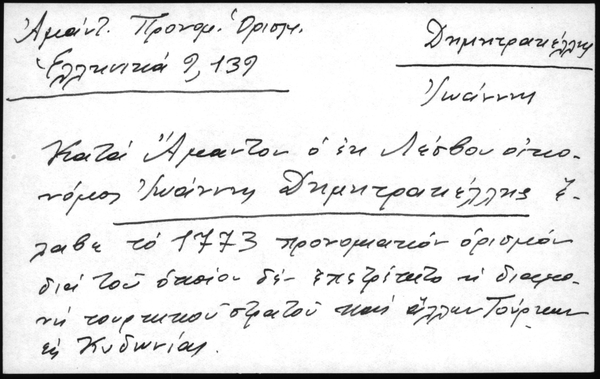 Ἀμάντ. Προνομ. Ὁρισμ.
Ἑλληνικά 9, 139
Δημητρακέλλης
Ἰωάννης
Κατά Ἄμαντον ὁ ἐκ Λέσβου οἰκο-
νόμος Ἰωάννης Δημητρακέλλης ἔ-
λαβε τό 1773 προνομιακόν ὁρισμόν
διά τοῦ ὁποίου δέν ἐπετρέπετο ἡ διαμο-
νή τουρκικοῦ στρατοῦ καί ἄλλων Τούρκων
εἰς Κυδωνίας.